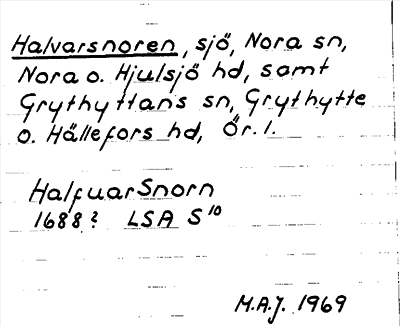 Halvarsnoren, sjö, Nora sn,
Nora o. Hjulsjö hd, samt
Grythyttans sn, Grythytte
o. Hällefors hd, Ör. l.
HalfuarSnorn
1688? LSA S10
M.A.J. 1969